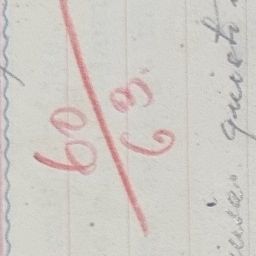 60
63.
questi